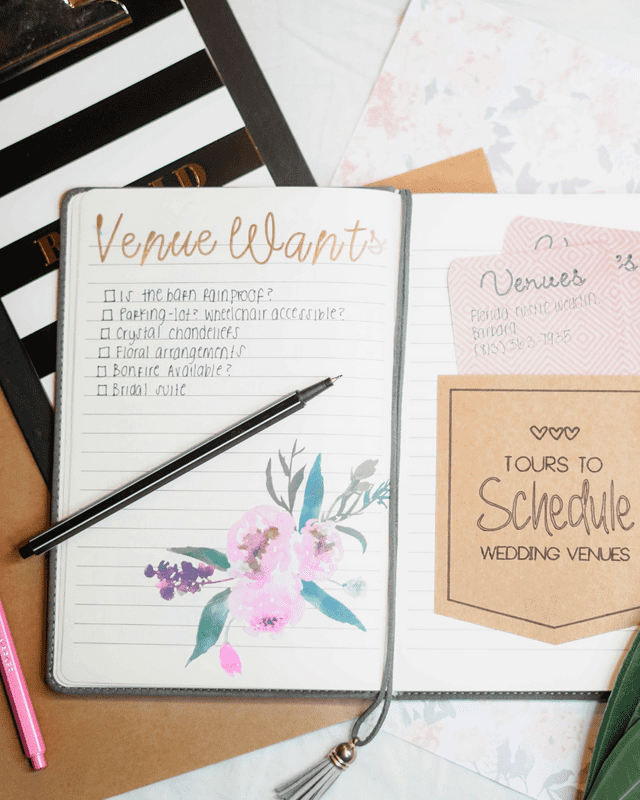 Venue Wants
☐ Is the barn rainproof?
☐ Parking-lot? Wheelchair accessible?
☐ Crystal chandeliers
☐ Floral arrangements
☐ Bonfire Available?
☐ Bridal suite
's
Venues
Florida rustic
Barbara
(813) 363-7935
TOURS TO
Schedule
WEDDING VENUES